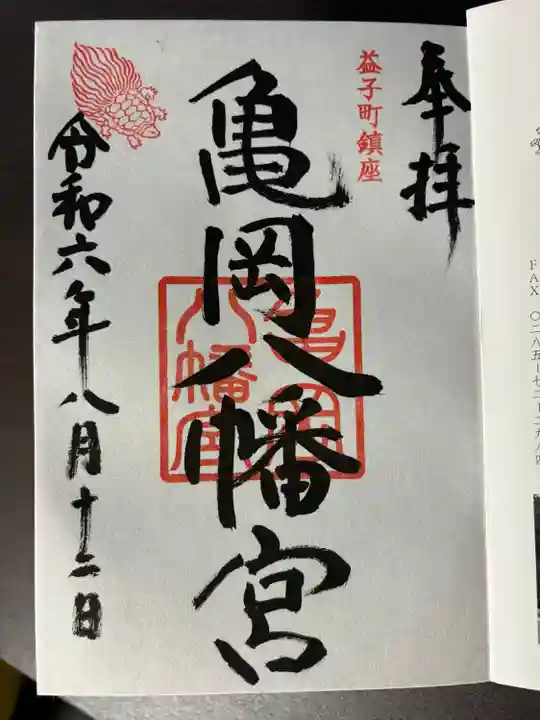 奉拝
益子町鎮座
亀岡八幡宮
亀岡八幡宮
令和六年八月十二日
FAX 〇二八五-七二-二九八四